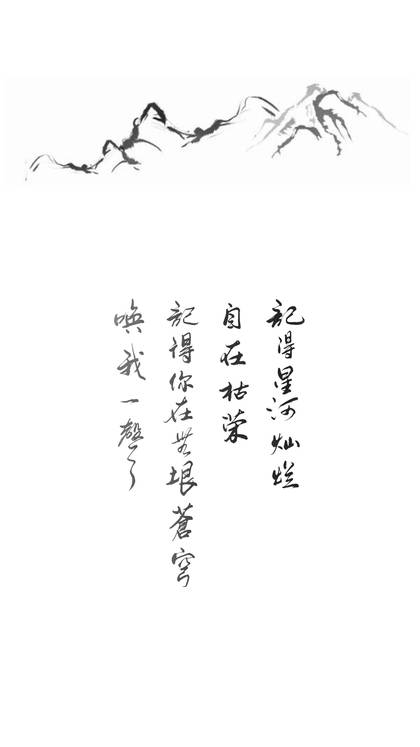 記得星河灿烂
自在枯荣
記得你在無垠蒼穹
喚我一聲了